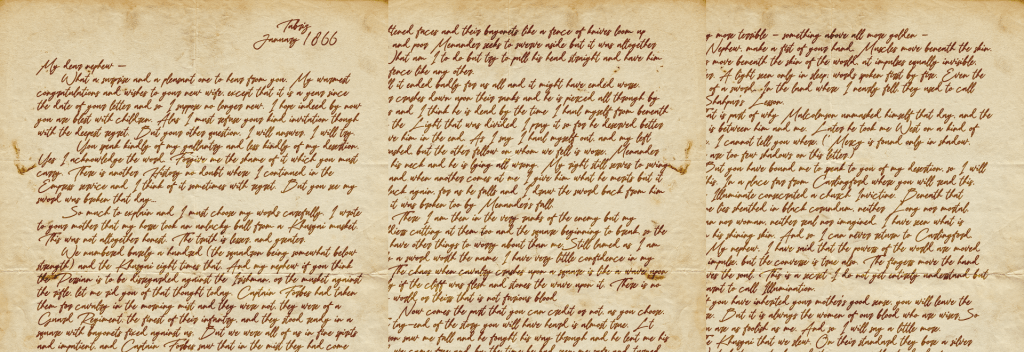 Tabriz
January 1866
My dear nephew –
What a surprise and a pleasant one to hear from you. My warmest
congratulations and wishes to your new wife except that it is a year since
the date of your letter and so I suppose no longer new. I hope indeed by now
you are blest with children. Alas I must refuse your kind invitation though
with the deepest regret. But your other question, I will answer. I will try.
You speak kindly of my gallantry and less kindly of my desertion.
Yes I acknowledge the word. Forgive me the shame of it which you must
carry. There is another History no doubt where I continued in the
Empress service and I think of it sometimes with regret. But you see my
sword was broken that day...
So much to explain and I must choose my words carefully. I wrote
to your mother that my horse took an unlucky ball from a Khasgai musket.
This was not altogether honest. The truth is lesser, and greater.
We numbered barely a hundred (the squadron being somewhat below
strength) and the Khasgai eight times that. And my nephew if you think
the Persian is to be disregarded against the Irishman, or the musket against
the rifle, let me rid you of that thought today. Captain Forbes had taken
them for cavalry in the morning mist and they were not, they were of
Guard Regiment, the finest of their infantry, and they stood ready in a
square with bayonets fixed against us. But we were all of us in fine spirits
and impatient, and Captain Forbes saw that in the mist they had come
faces and their bayonets like a fence of knives loom up
and poor Menander seeks to swerve aside but it was altogether
that am I to do but try to pull his head straight and have him
fence like any other.
it ended badly for us all and it might have ended worse.
crashes down upon their ranks and he is pierced all through by
and I think he is dead by the time I haul myself from beneath
the Light that was divided. I pray it so for he deserved better
we him in the end. As I say, I haul myself out and my left
but the other fellow on whom we fell is worse. Menander
his neck and he is lying all wrong. My right still serves to swing
and when another comes at me I give him what he merits but it
back again for as he falls and I draw the sword back from him
it was broken too by Menander's fall.
There I am then in the very ranks of the enemy but my
cutting at them too and the square beginning to break so the
have other things to worry about than me. Still lamed as I am
a sword worth the name, I have very little confidence in my
The chaos when cavalry crashes upon a square is like a wave upon
if the cliff was flesh and stones the wave upon it. There is no
world, or theirs that is not furious blood.
Now comes the part that you can credit or not as you choose.
tag-end of the story you will have heard is almost true. Lt
saw me fall and he fought his way through and he lent me his
we came free and by the time he had seen me safe and turned
more terrible – something above all more golden –
Nephew, make a fist of your hand. Muscles move beneath the skin.
move beneath the skin of the world, at impulses equally invisible.
A light seen only in sleep, words spoken first by fire. Even the
of a sword. In the land where I nearly fell they used to call
Shahpur's Lesson.
is part of why Malcolmson unmasked himself that day, and the
is between him and me. Later he took me West on a kind of
I cannot tell you where. (Mercy is found only in shadow.
are too few shadows on this letter.)
But you have bound me to speak to you of my desertion, so I will
this. In a place far from Castingford where you will read this,
Illuminate consecrated a church Invictine. Beneath that
lies sheathed in black corundum neither living nor mortal,
nor woman, neither real nor imagined. I have seen what is
his shining skin. And so I can never return to Castingford.
My nephew, I have said that the powers of the world are moved
impulse, but the converse is true also. The fingers move the hand
the soul. This is a secret I do not yet entirely understand but
want to call Illumination.
you have inherited your mother's good sense, you will leave the
But it is always the women of our blood who are wiser. So
are as foolish as me. And so I will say a little more.
Khasgai that we slew. On their standard they bore a silver